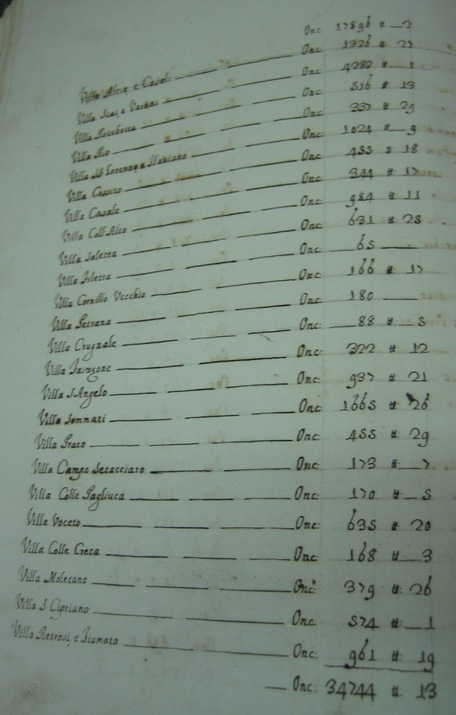 Onc: 17896 # 2
Villa Alta e Casali Onc: 1326 # 27
Villa Onc: 4282 # 1
Villa Rocchetta Onc: 516 # 13
Villa Rio Onc: 337 # 29
Villa S Lorenzo e Flaviano Onc: 1024 # 9
Villa Cossito Onc: 455 # 18
Villa Casale Onc: 344 # 17
Villa Coll'Alto Onc: 984 # 11
Villa Saletta Onc: 631 # 28
Villa Filetta Onc: 65
Villa Cornillo Vecchio Onc: 166 # 17
Villa Ferrana Onc: 180
Villa Crognale Onc: 88 # 5
Villa Onc: 322 # 12
Villa S. Angelo Onc: 937 # 21
Villa Sommati Onc: 1665 # 26
Villa Prato Onc: 455 # 29
Villa Campo Sacacciaro Onc: 173 # 7
Villa Colle Pagliuca Onc: 170 # 5
Villa Voceto Onc: 635 # 20
Villa Colle Creta Onc: 168 # 3
Villa Moletano Onc: 379 # 26
Villa S. Cipriano Onc: 574 # 1
Villa Retrosi, e Fiumato Onc: 961 # 19
Onc: 34744 # 13